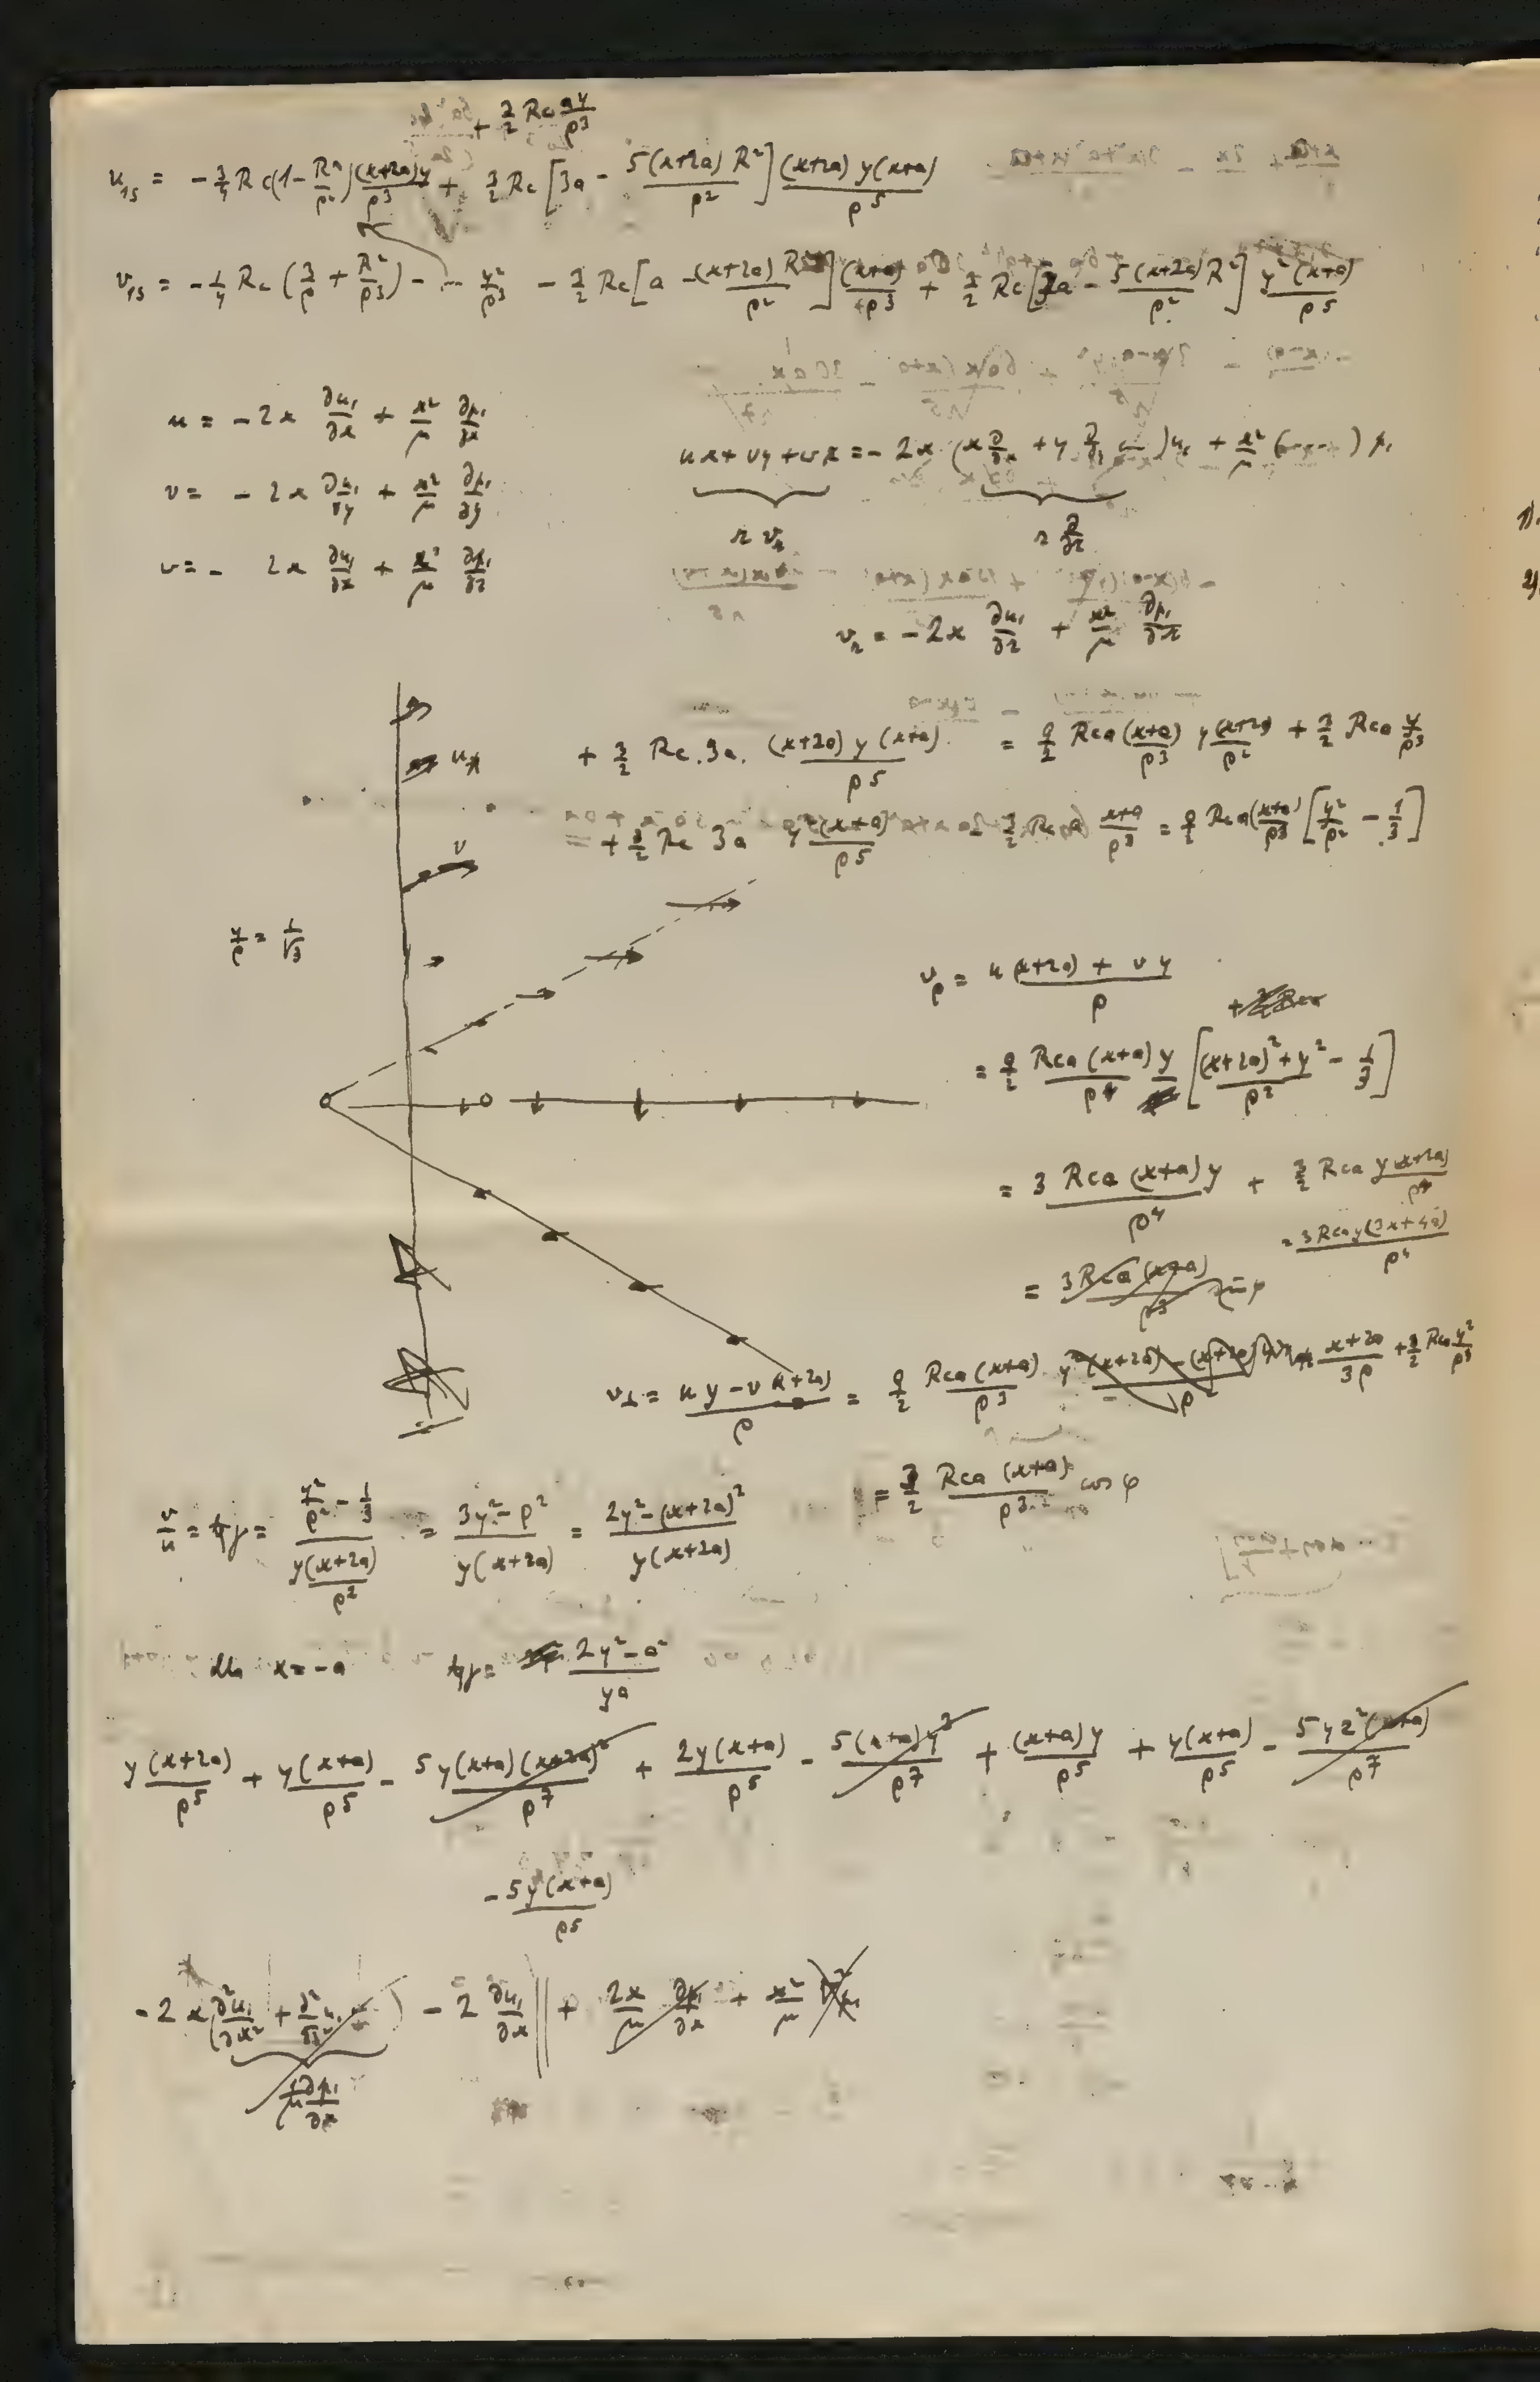 + 3/2 Rc ay/ρ³
u₁₅ = - 3/4 Rc(1 - R²/ρ²) (x+2a)y/ρ³ + 3/2 Rc [3a - 5(x+2a)R²/ρ²] (x+2a) y(x+a)/ρ⁵
v₁₅ = - 1/4 Rc (3/ρ + R²/ρ³) - - y²/ρ³ - 3/2 Rc [a - (x+2a)R²/ρ²] (x+a)/ρ³ + 3/2 Rc [3a - 5(x+2a)R²/ρ²] y²(x+a)/ρ⁵
u = - 2x ∂u₁/∂x + x²/μ ∂p₁/∂x
ux + vy + wz = - 2x (x ∂/∂x + y ∂/∂y --)u₁ + x²/μ (-----) p₁
v = - 2x ∂u₁/∂y + x²/μ ∂p₁/∂y
r vᵣ r ∂/∂r
w = - 2x ∂u₁/∂z + x²/μ ∂p₁/∂z
vᵣ = - 2x ∂u₁/∂r + x²/μ ∂p₁/∂r
u
+ 3/2 Rc . 3a . (x+2a) y (x+a)/ρ⁵ = 9/2 Rca (x+a)/ρ³ y(x+2a)/ρ² + 3/2 Rca y/ρ³
v
= + 3/2 Rc 3a y²(x+a)/ρ⁵ - 3/2 Rca x+a/ρ³ = 9/2 Rca (x+a)/ρ³ [y²/ρ² - 1/3]
y/ρ = 1/√3
v_ρ = u(x+2a) + v y/ρ
= 9/2 Rca (x+a) y/ρ⁴ [(x+2a)² + y²/ρ² - 1/3]
= 3 Rca (x+a) y/ρ⁴ + 3/2 Rca y(x+2a)/ρ⁴
= 3 Rca y(3x+4a)/ρ⁴
= 3 Rca (x+a)/ρ³ sin φ
v⊥ = u y - v(x+2a)/ρ = 9/2 Rca (x+a)/ρ³ x+2a/3ρ + 3/2 Rca y²/ρ³
= 3/2 Rca (x+a)/ρ³ cos φ
v/u = tgγ = y²/ρ² - 1/3 / y(x+2a)/ρ² = 3y² - ρ²/y(x+2a) = 2y² - (x+2a)²/y(x+2a)
dla x = - a tgγ = 2y² - a²/ya
y(x+2a)/ρ⁵ + y(x+a)/ρ⁵ - 5y(x+a)(x+2a)²/ρ⁷ + 2y(x+a)/ρ⁵ - 5(x+a)y³/ρ⁷ + (x+a)y/ρ⁵ + y(x+a)/ρ⁵ - 5yz²(x+a)/ρ⁷
- 5y(x+a)/ρ⁵
- 2x (∂²u₁/∂x² + ) - 2 ∂u₁/∂x || + 2x/μ ∂p₁/∂x + x²/μ
1/μ ∂p₁/∂x